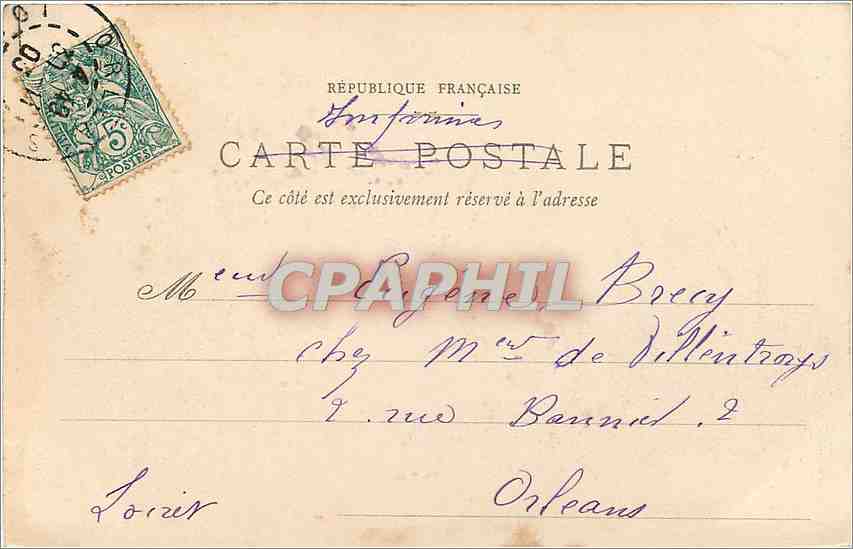 RÉPUBLIQUE FRANÇAISE
Imprimés
CARTE POSTALE
Ce côté est exclusivement réservé à l'adresse
Meur Eugène Brecy
CPAPHIL
chez Meur de Villentroys
2. rue Bannier. 2
Orleans
Loiret
5c
POSTES